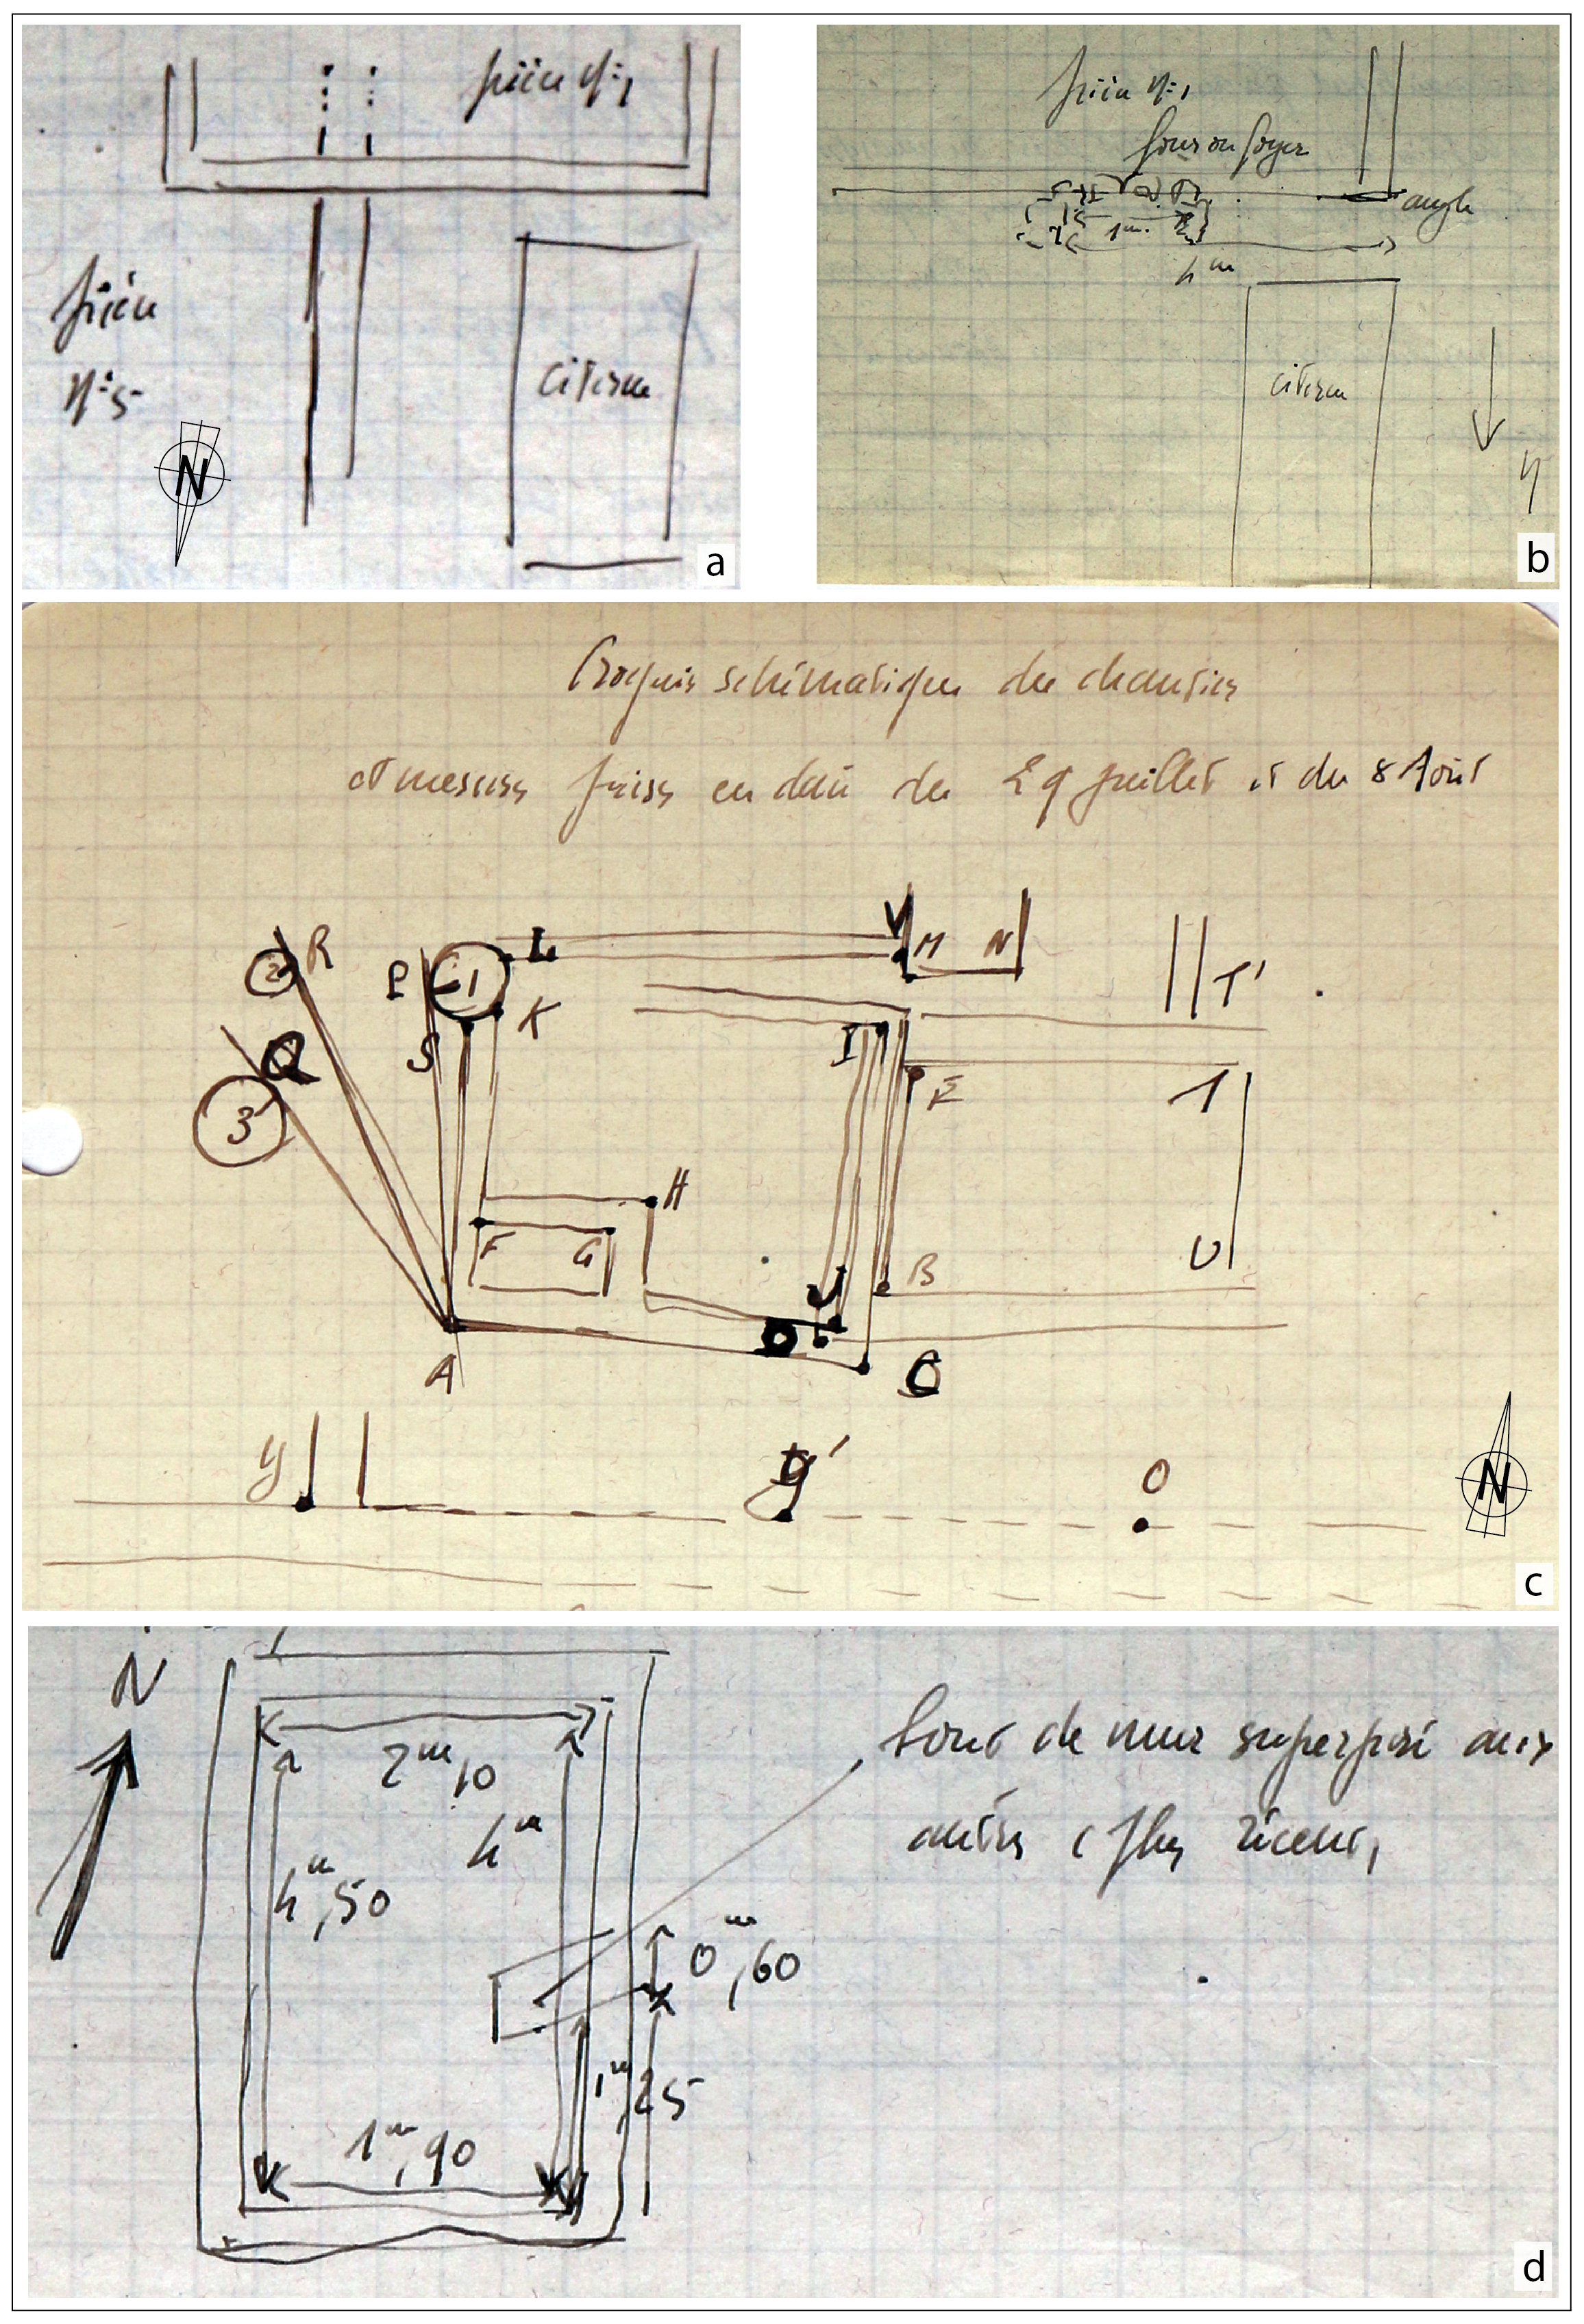 pièce N=1
pièce
N=5
citerne
N
a
pièce N=1
four ou foyer
angle
1m.
4m
citerne
N
b
Croquis schématique du chantier
et mesures prises en date du 29 Juillet et du 8 Août
R
2
P
1
L
V
M
N
T'
K
S
I
Q
3
E
T
H
F
G
U
J
B
D
A
C
y
y'
O
N
c
N
2m,10
4m
4m,50
0m,60
1m,25
1m,90
bout de mur superposé aux
autres (plus récent)
d